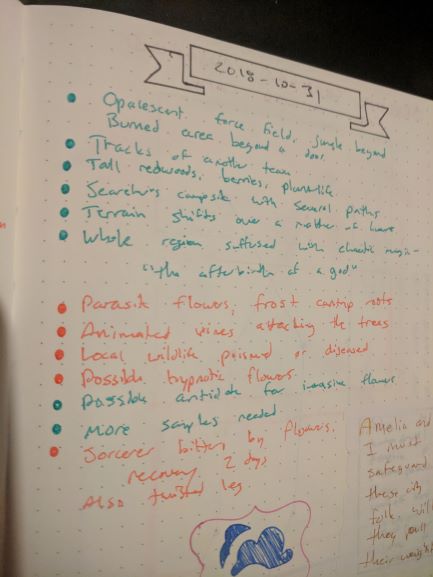 2018-10-31
Opalescent force field, jungle beyond
Burned area beyond a door
Tracks of another team
Tall redwoods, berries, plantlife
Searching campsite with several paths
Terrain shifts over a matter of hours
Whole region suffused with chaotic magic -
"the afterbirth of a god"
Parasite flowers, frost cantrip roots
Animated vines attacking the trees
Local wildlife poisoned or diseased
Possible hypnotic flowers
Possible antidote for invasive flowers
More samples needed
Sorcerer bitten by flowers.
recovery 2 days
Also twisted leg
Amelia and
I must
safeguard
these city
folk
they pull
their weight